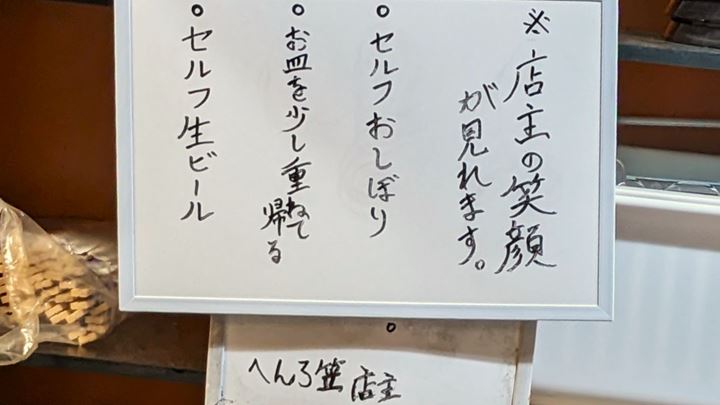 ※店主の笑顔
が見れます。
• セルフおしぼり
• お皿を少し重ねて
帰る
• セルフ生ビール
へんろ笠 店主